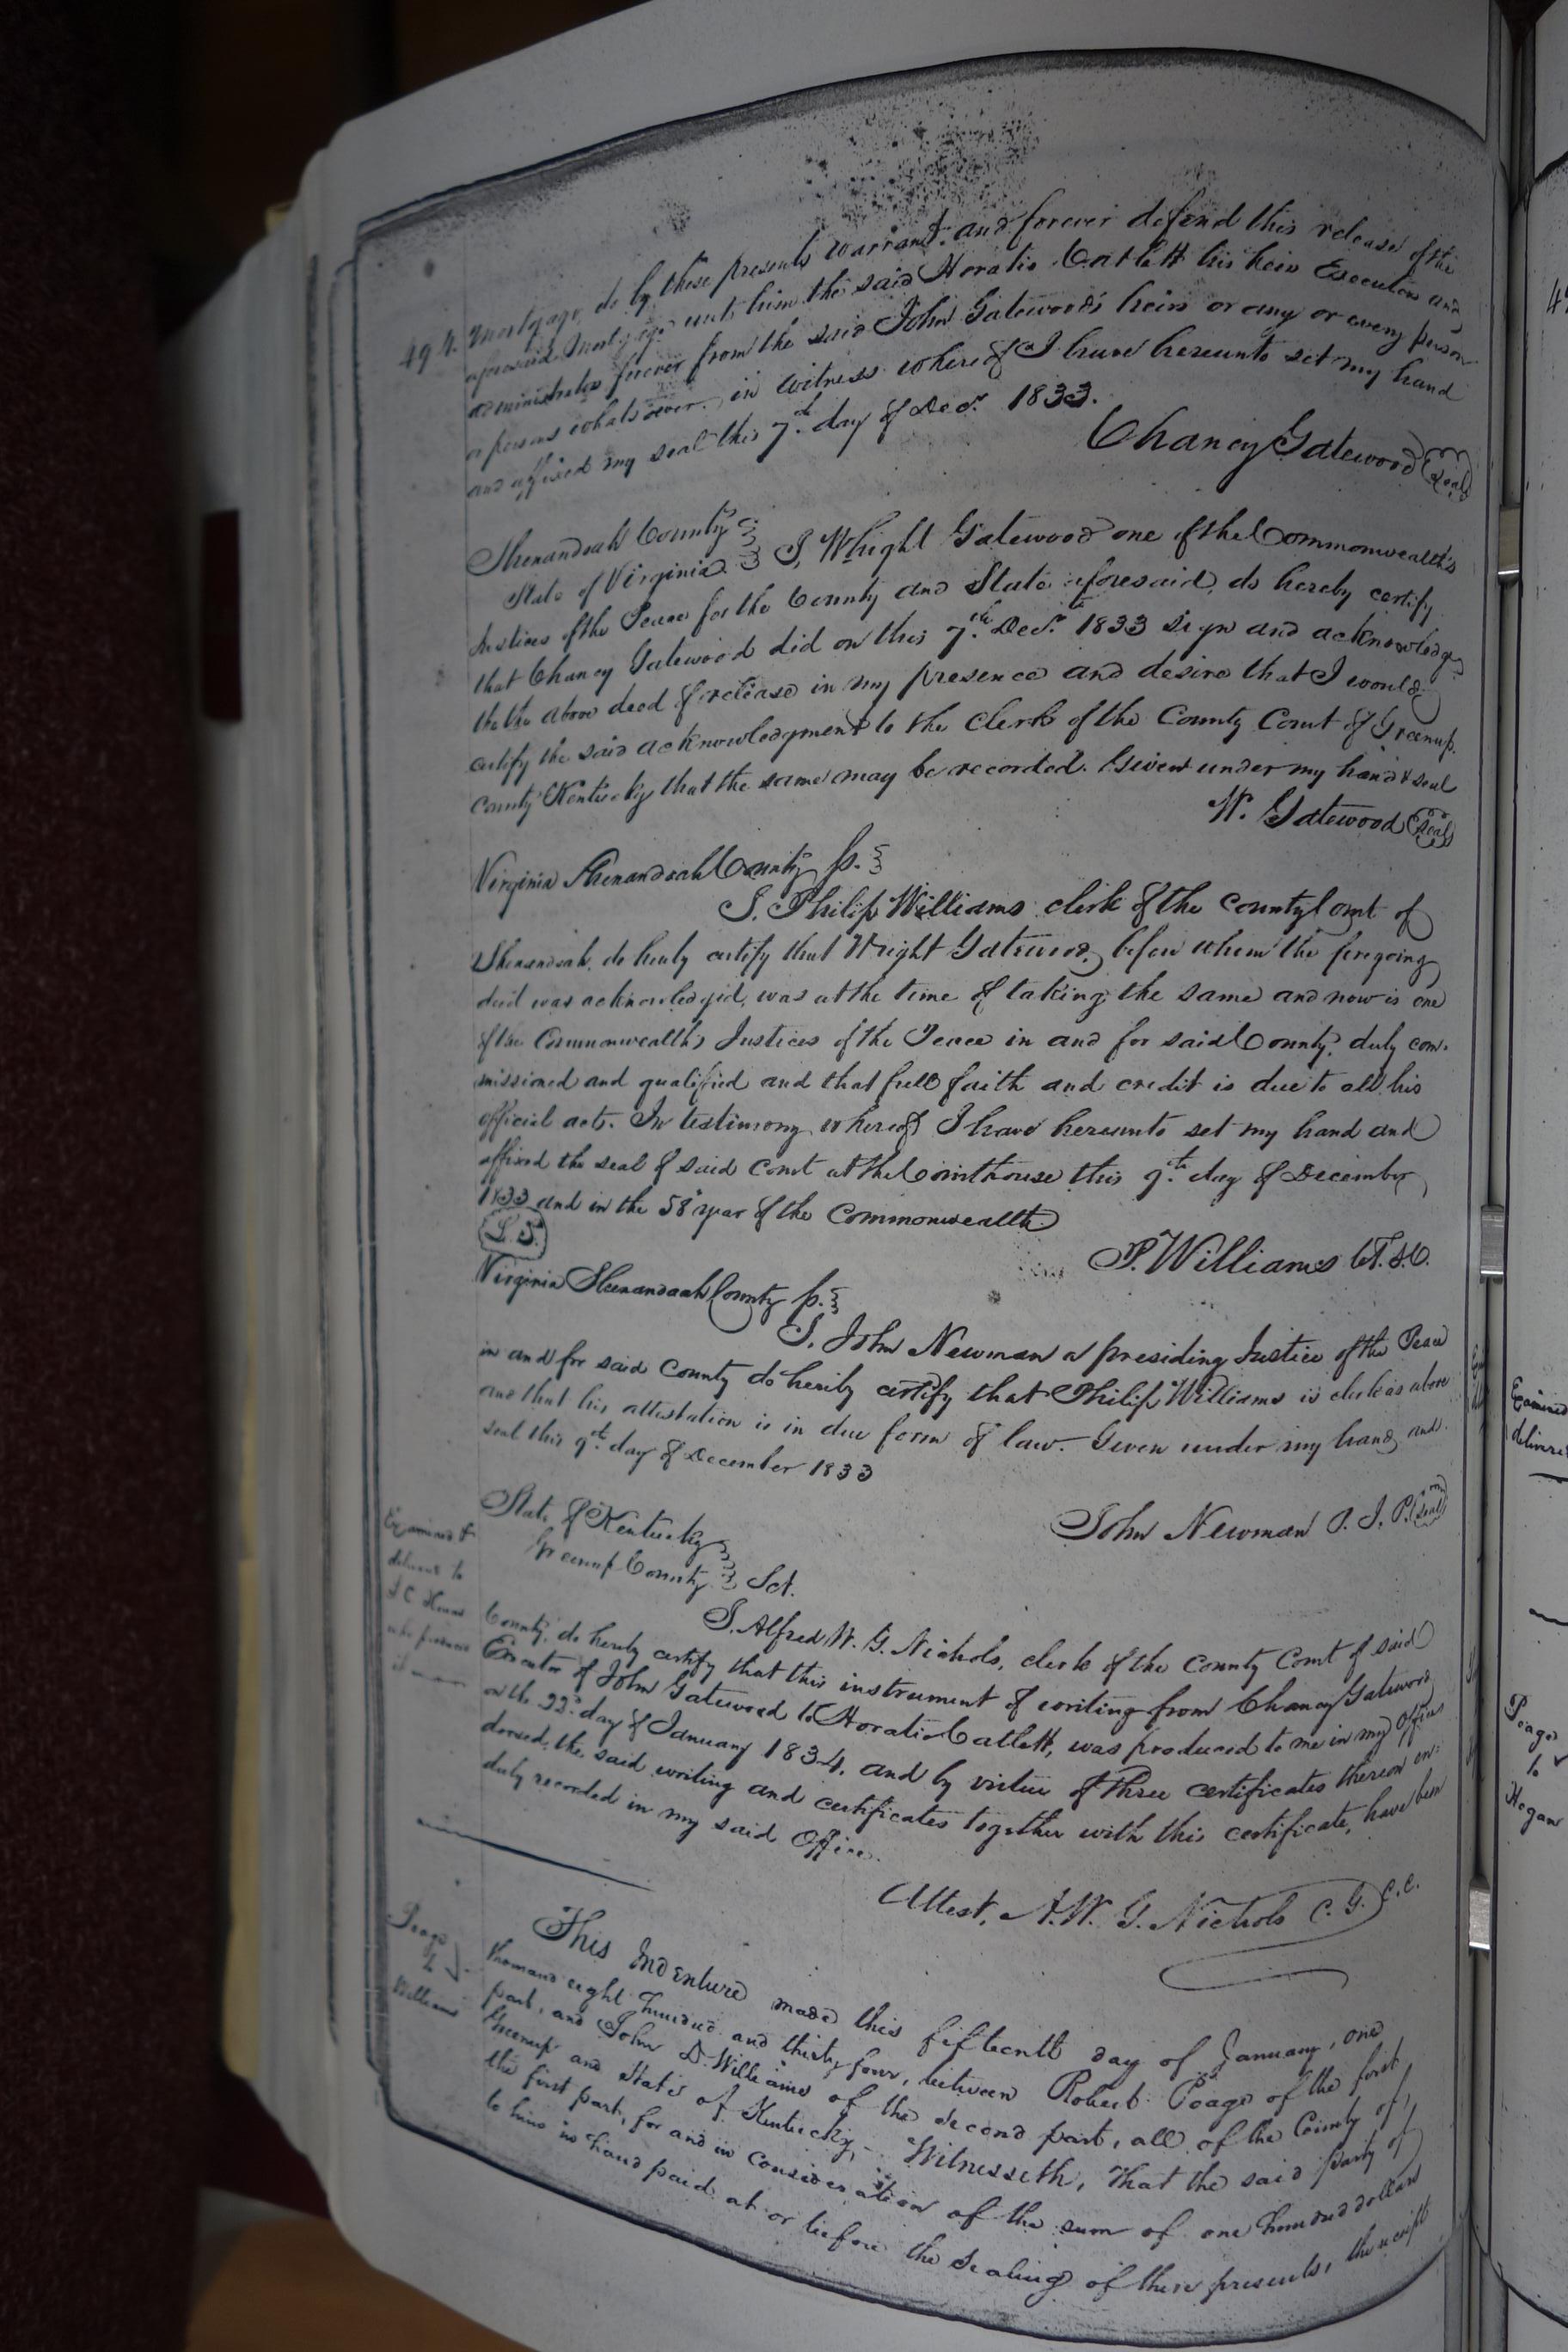 494. Mortgage, do by these presents warrant and forever defend this release of the
aforesaid Mortgage unto him the said Horatio Catlett his heirs Executors and
administrators forever from the said John Gatewood's heirs or any or every person
or persons whatsoever. in witness whereof I have hereunto set my hand
and affixed my seal this 7th day of Decr. 1833.
Chancy Gatewood Seal
Shenandoah County
State of Virginia I, Wright Gatewood one of the Commonwealth's
Justices of the Peace for the County and State aforesaid, do hereby certify
that Chancy Gatewood did on this 7th Decr. 1833 sign and acknowledge
the the above deed of release in my presence and desire that I would
certify the said acknowledgment to the Clerk of the County Court of Greenup
County Kentucky that the same may be recorded. Given under my hand & seal
W. Gatewood Seal
Virginia Shenandoah County ss.
I, Philip Williams clerk of the County Court of
Shenandoah, do hereby certify that Wright Gatewood, before whom the foregoing
deed was acknowledged, was at the time of taking the same and now is one
of the Commonwealth's Justices of the Peace in and for said County, duly com-
missioned and qualified and that full faith and credit is due to all his
official acts. In testimony whereof I have hereunto set my hand and
affixed the seal of said Court at the Courthouse this 9th day of December
1833 and in the 58 year of the Commonwealth
L. S.
P. Williams
Virginia Shenandoah County ss.
I, John Newman a presiding Justice of the Peace
in and for said County do hereby certify that Philip Williams is clerk as above
and that his attestation is in due form of law. Given under my hand and
seal this 9th day of December 1833
John Newman P. J. P. Seal
State of Kentucky
Greenup County Sct.
Examined &
delivered to
I. Alfred W. G. Nichols, clerk of the County Court of said
County, do hereby certify that this instrument of writing from Chancy Gatewood
Executor of John Gatewood to Horatio Catlett, was produced to me in my Office
on the 22d day of January 1834. and by virtue of three certificates thereon en-
dorsed, the said writing and certificates together with this certificate, have been
duly recorded in my said Office.
Attest, A. W. G. Nichols C. G. C. C.
Poage
to
Williams
This Indenture made this fifteenth day of January, one
thousand eight hundred and thirty four, between Robert Poage of the first
part, and John D. Williams of the second part, all of the County of
Greenup and State of Kentucky, Witnesseth, That the said party of
the first part, for and in consideration of the sum of one hundred dollars
to him in hand paid at or before the sealing of these presents, the receipt
Examined
Poage
to
Hogan